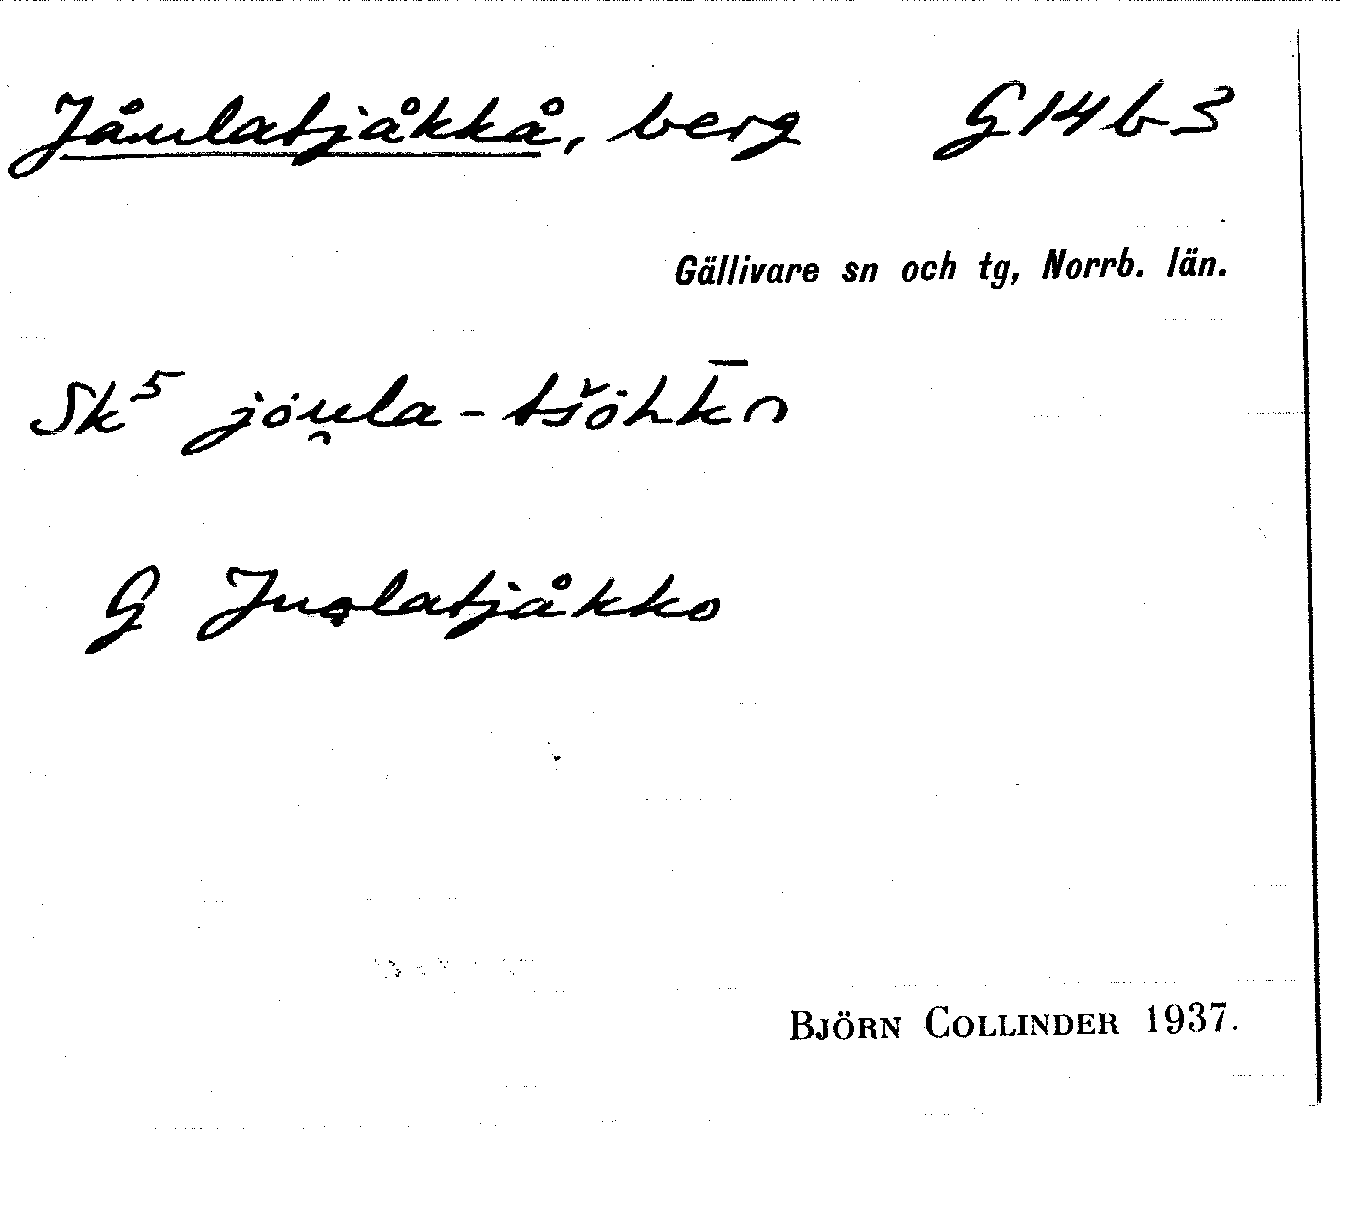 Jåulatjåkkå, berg G14b3
Gällivare sn och tg, Norrb. län.
Sk⁵ jȯu̯la-tšöhk̄n
G Juolatjåkko
BJÖRN COLLINDER 1937.